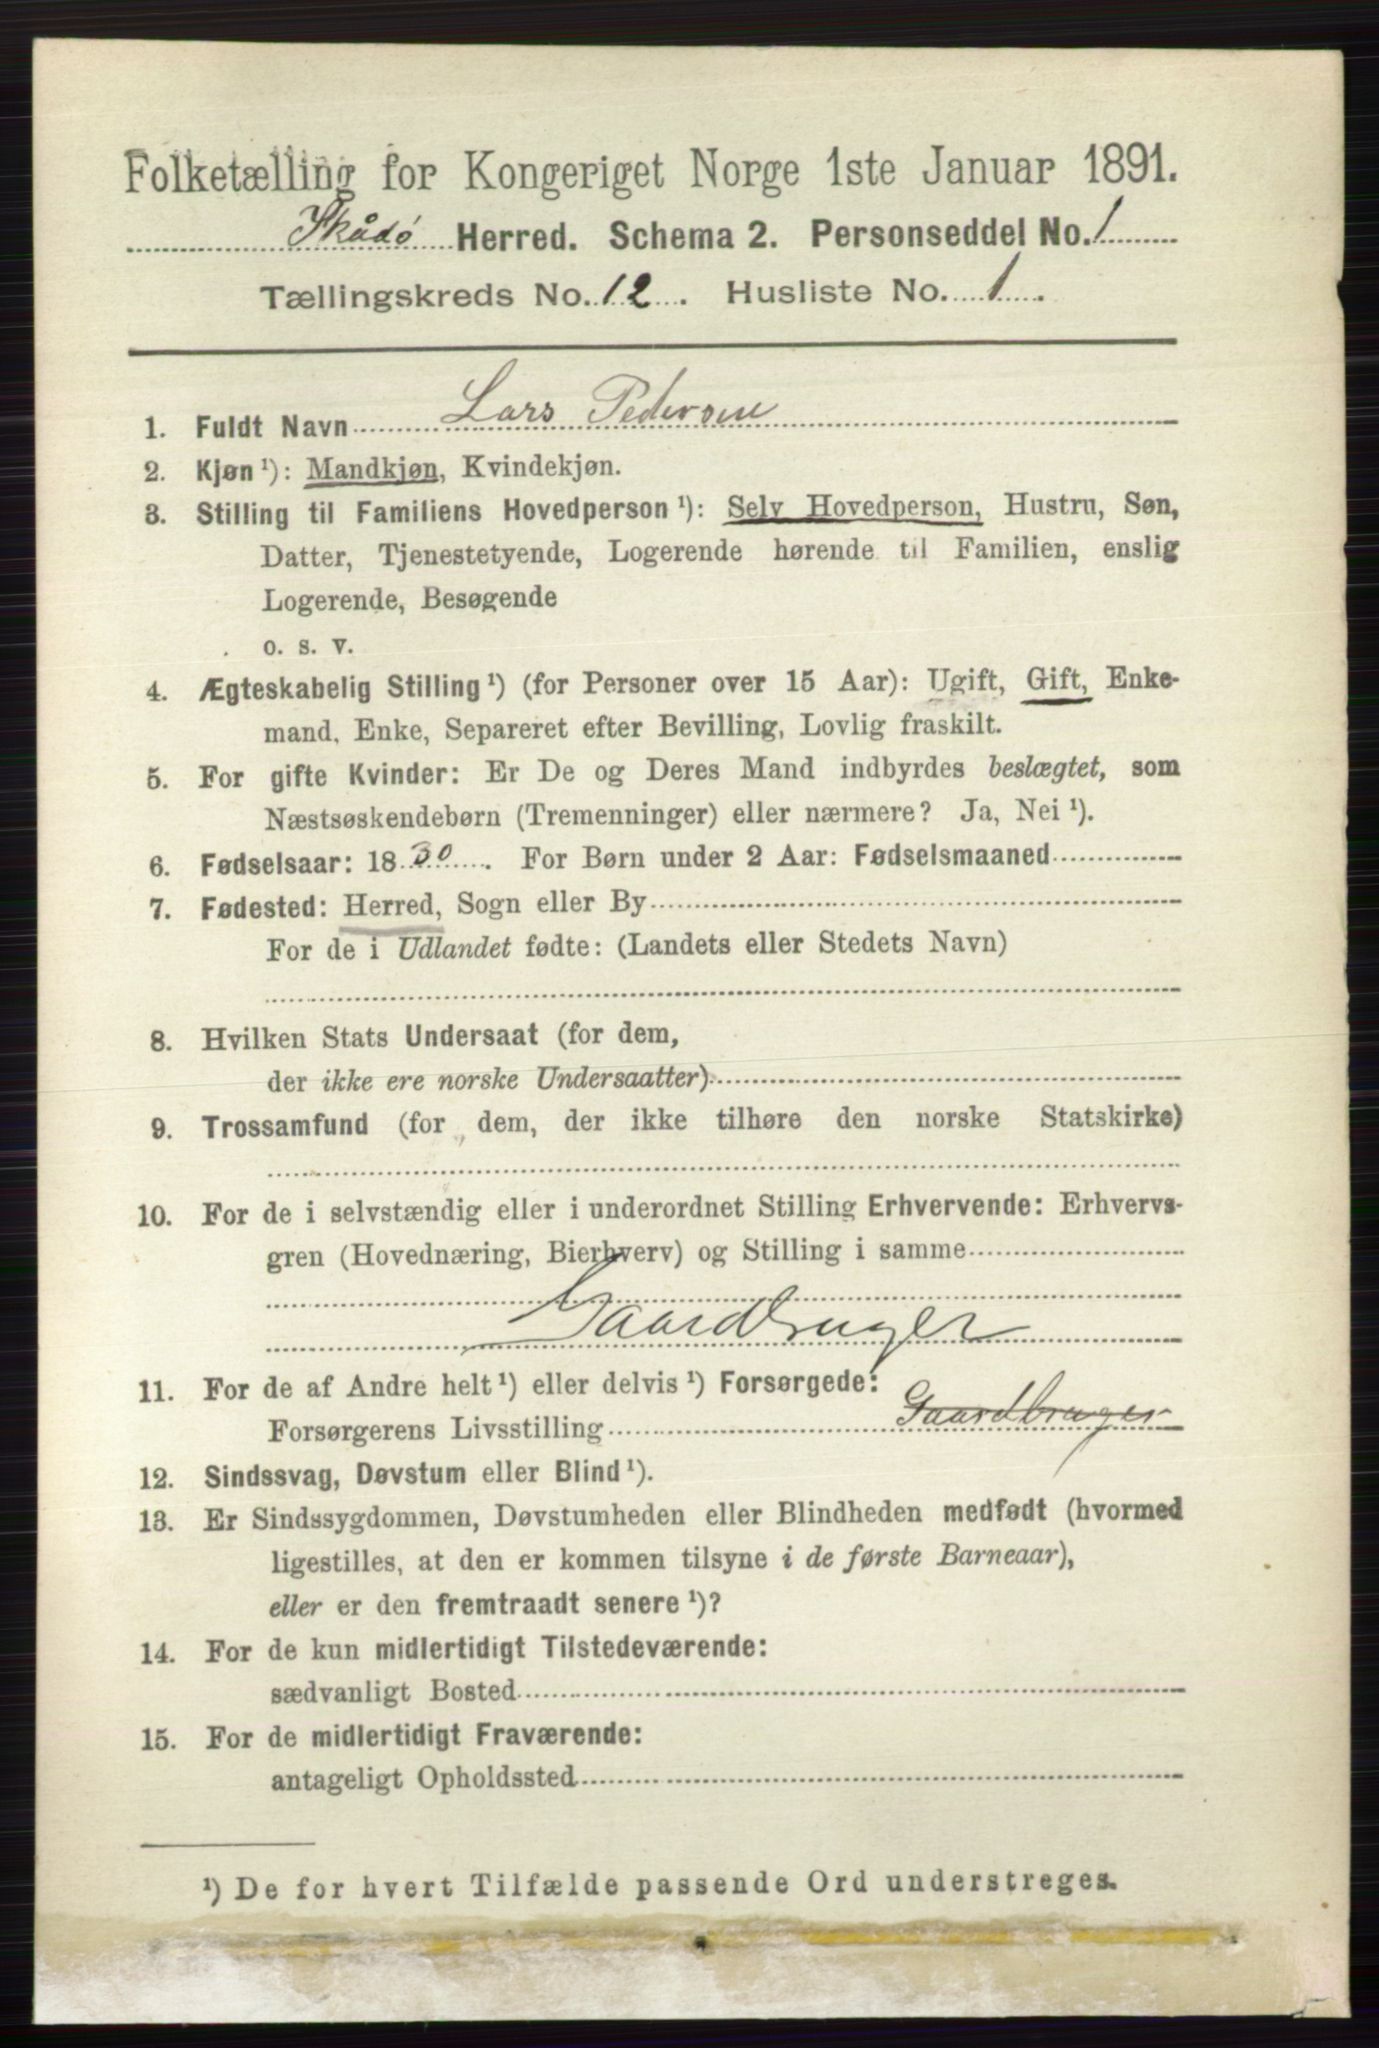 Folketælling for Kongeriget Norge 1ste Januar 1891.
Skådø Herred. Schema 2. Personseddel No. 1
Tællingskreds No. 12. Husliste No. 1.
1. Fuldt Navn Lars Pedersen
2. Kjøn ¹): Mandkjøn, Kvindekjøn.
3. Stilling til Familiens Hovedperson ¹): Selv Hovedperson, Hustru, Søn,
Datter, Tjenestetyende, Logerende hørende til Familien, enslig
Logerende, Besøgende
o. s. v.
4. Ægteskabelig Stilling ¹) (for Personer over 15 Aar): Ugift, Gift, Enke-
mand, Enke, Separeret efter Bevilling, Lovlig fraskilt.
5. For gifte Kvinder: Er De og Deres Mand indbyrdes beslægtet, som
Næstsøskendebørn (Tremenninger) eller nærmere? Ja, Nei ¹).
6. Fødselsaar: 1830. For Børn under 2 Aar: Fødselsmaaned
7. Fødested: Herred, Sogn eller By
For de i Udlandet fødte: (Landets eller Stedets Navn)
8. Hvilken Stats Undersaat (for dem,
der ikke ere norske Undersaatter)
9. Trossamfund (for dem, der ikke tilhøre den norske Statskirke)
10. For de i selvstændig eller i underordnet Stilling Erhvervende: Erhvervs-
gren (Hovednæring, Bierhverv) og Stilling i samme
Gaardbruger
11. For de af Andre helt ¹) eller delvis ¹) Forsørgede:
Forsørgerens Livsstilling Gaardbruger
12. Sindssvag, Døvstum eller Blind ¹).
13. Er Sindssygdommen, Døvstumheden eller Blindheden medfødt (hvormed
ligestilles, at den er kommen tilsyne i de første Barneaar),
eller er den fremtraadt senere ¹)?
14. For de kun midlertidigt Tilstedeværende:
sædvanligt Bosted
15. For de midlertidigt Fraværende:
antageligt Opholdssted
¹) De for hvert Tilfælde passende Ord understreges.